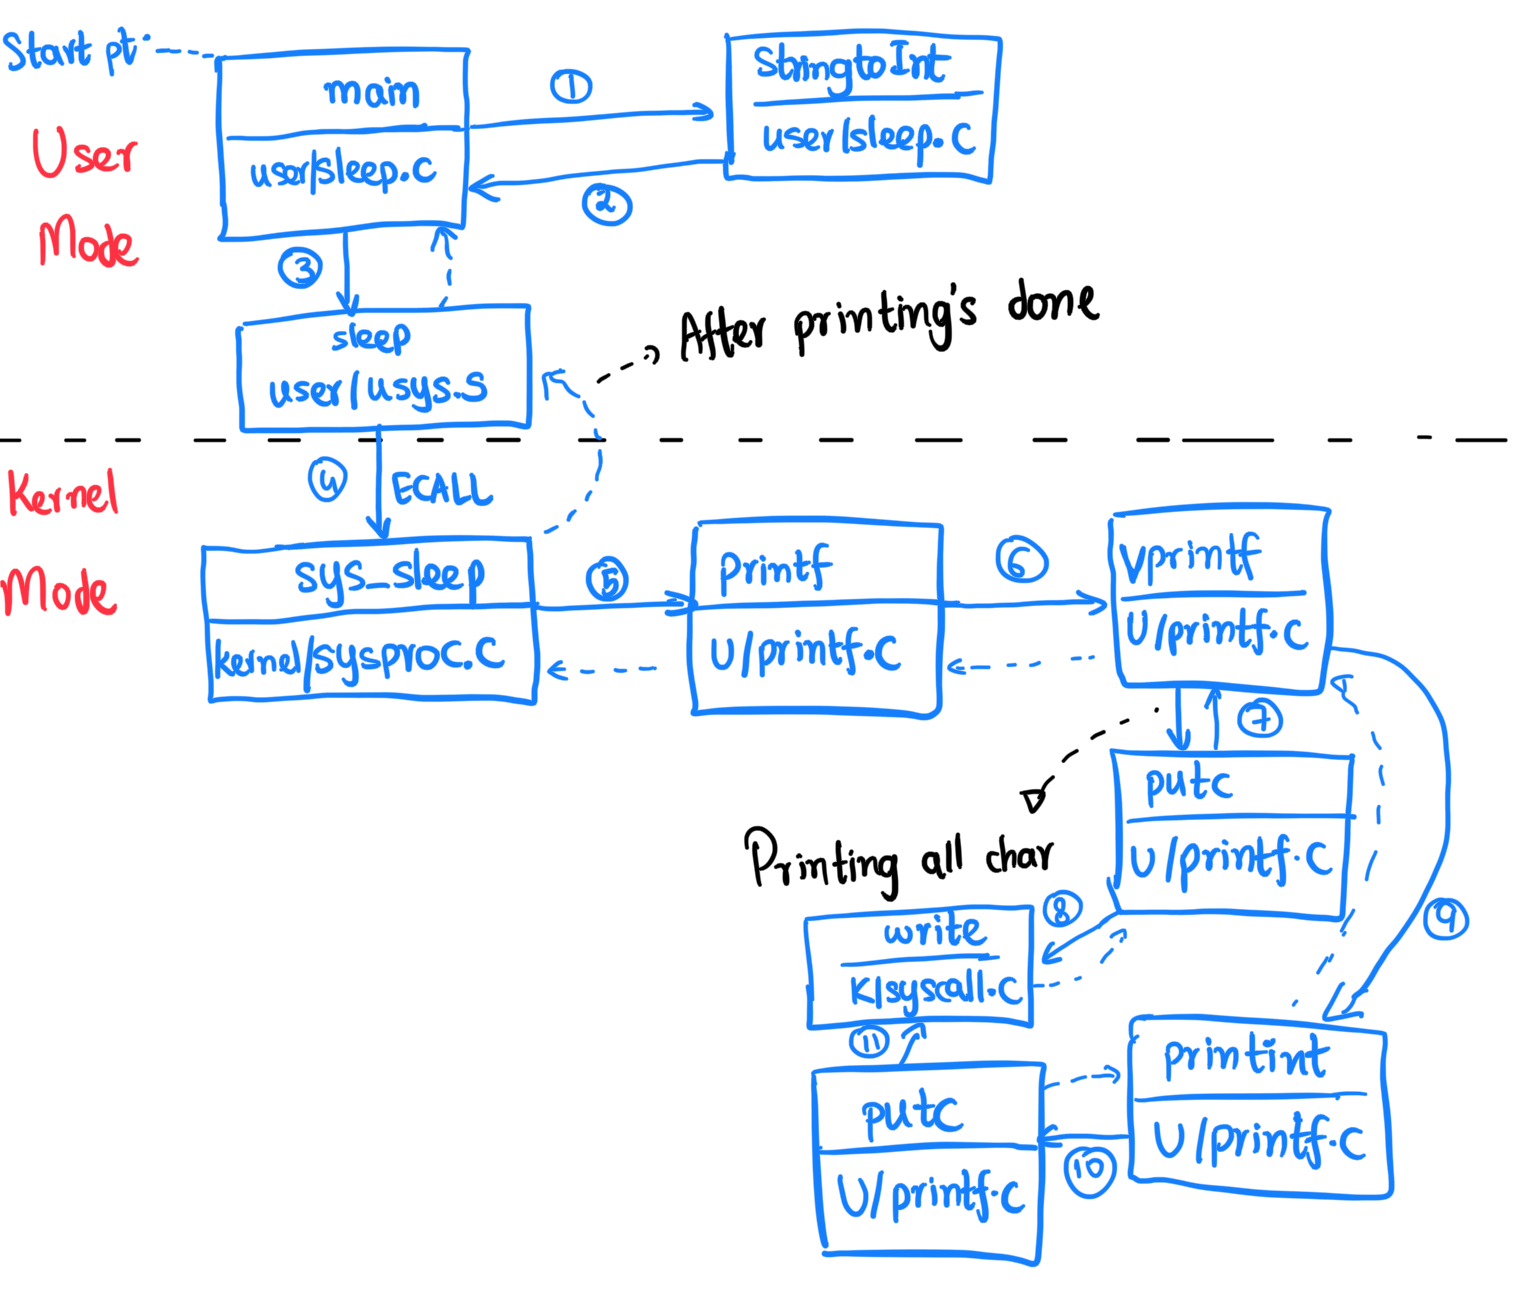 Start pt.
main
user/sleep.c
①
StringtoInt
user/sleep.c
②
User
Mode
③
sleep
user/usys.S
After printing's done
Kernel
Mode
④ ECALL
sys_sleep
kernel/sysproc.c
⑤
printf
U/printf.c
⑥
vprintf
U/printf.c
⑦
putc
U/printf.c
Printing all char
⑧
write
K/syscall.c
⑨
⑪
putc
U/printf.c
⑩
printint
U/printf.c